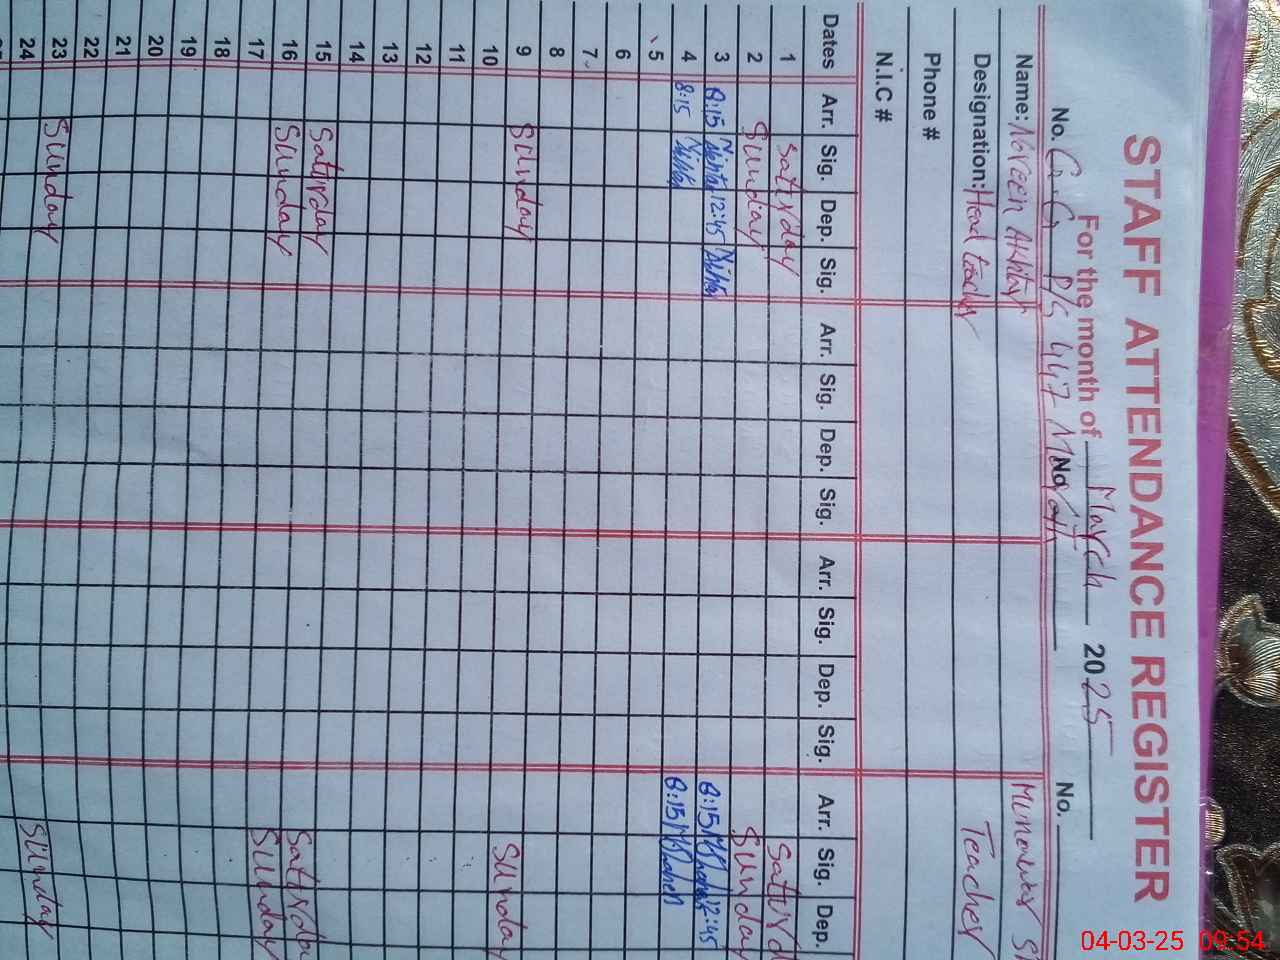 STAFF ATTENDANCE REGISTER
For the month of March 2025
No. G.G P/S 447 No. No.
Name: Noreen Akhtar
Designation: Head teacher Teacher
Phone #
N.I.C #
Dates Arr. Sig. Dep. Sig. Arr. Sig. Dep. Sig. Arr. Sig. Dep. Sig. Arr. Sig. Dep.
1 Saturday
2 Sunday Sunday
3 8:15 12:45 8:15 12:45
4 8:15 8:15
5
6
7
8
9 Sunday Sunday
10
11
12
13
14
15 Saturday
16 Sunday Sunday
17
18
19
20
21
22
23 Sunday Sunday
24
04-03-25 09:54